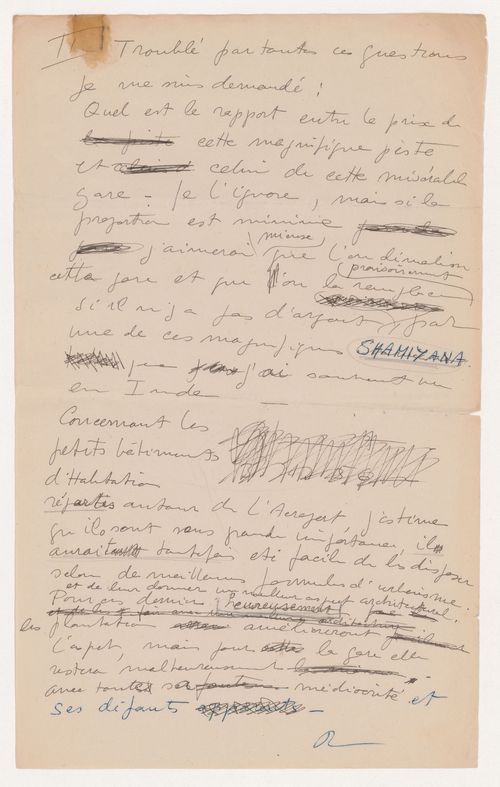 I Troublé par toutes ces questions
je me suis demandé :
Quel est le rapport entre le prix de
cette magnifique piste
et celui de cette misérable
gare - Je l'ignore, mais si la
proportion est minime
mieux
j'aimerai que l'on
provisoirement
cette gare et que l'on la remplace
si il n'y a pas d'argent, par
une de ces magnifiques SHAMIYANA.
que j'ai souvent vu
en Inde —
Concernant les
petits bâtiments
d'Habitation
répartis autour de L'Aeroport j'estime
qu'ils sont sans grande importance, ils
auraient toutefois été facile de les disposer
selon de meilleures formules d'urbanisme.
et de leur donner un meilleur aspect architectural.
Pour ces derniers heureusement
les plantation amélioreront
l'aspect, mais pour la gare elle
restera, malheureusement
avec toutes sa médiocrité et
ses défauts —